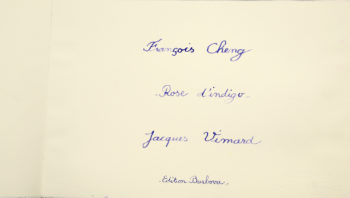 François Cheng
Rose d'indigo
Jacques Vimard
Edition